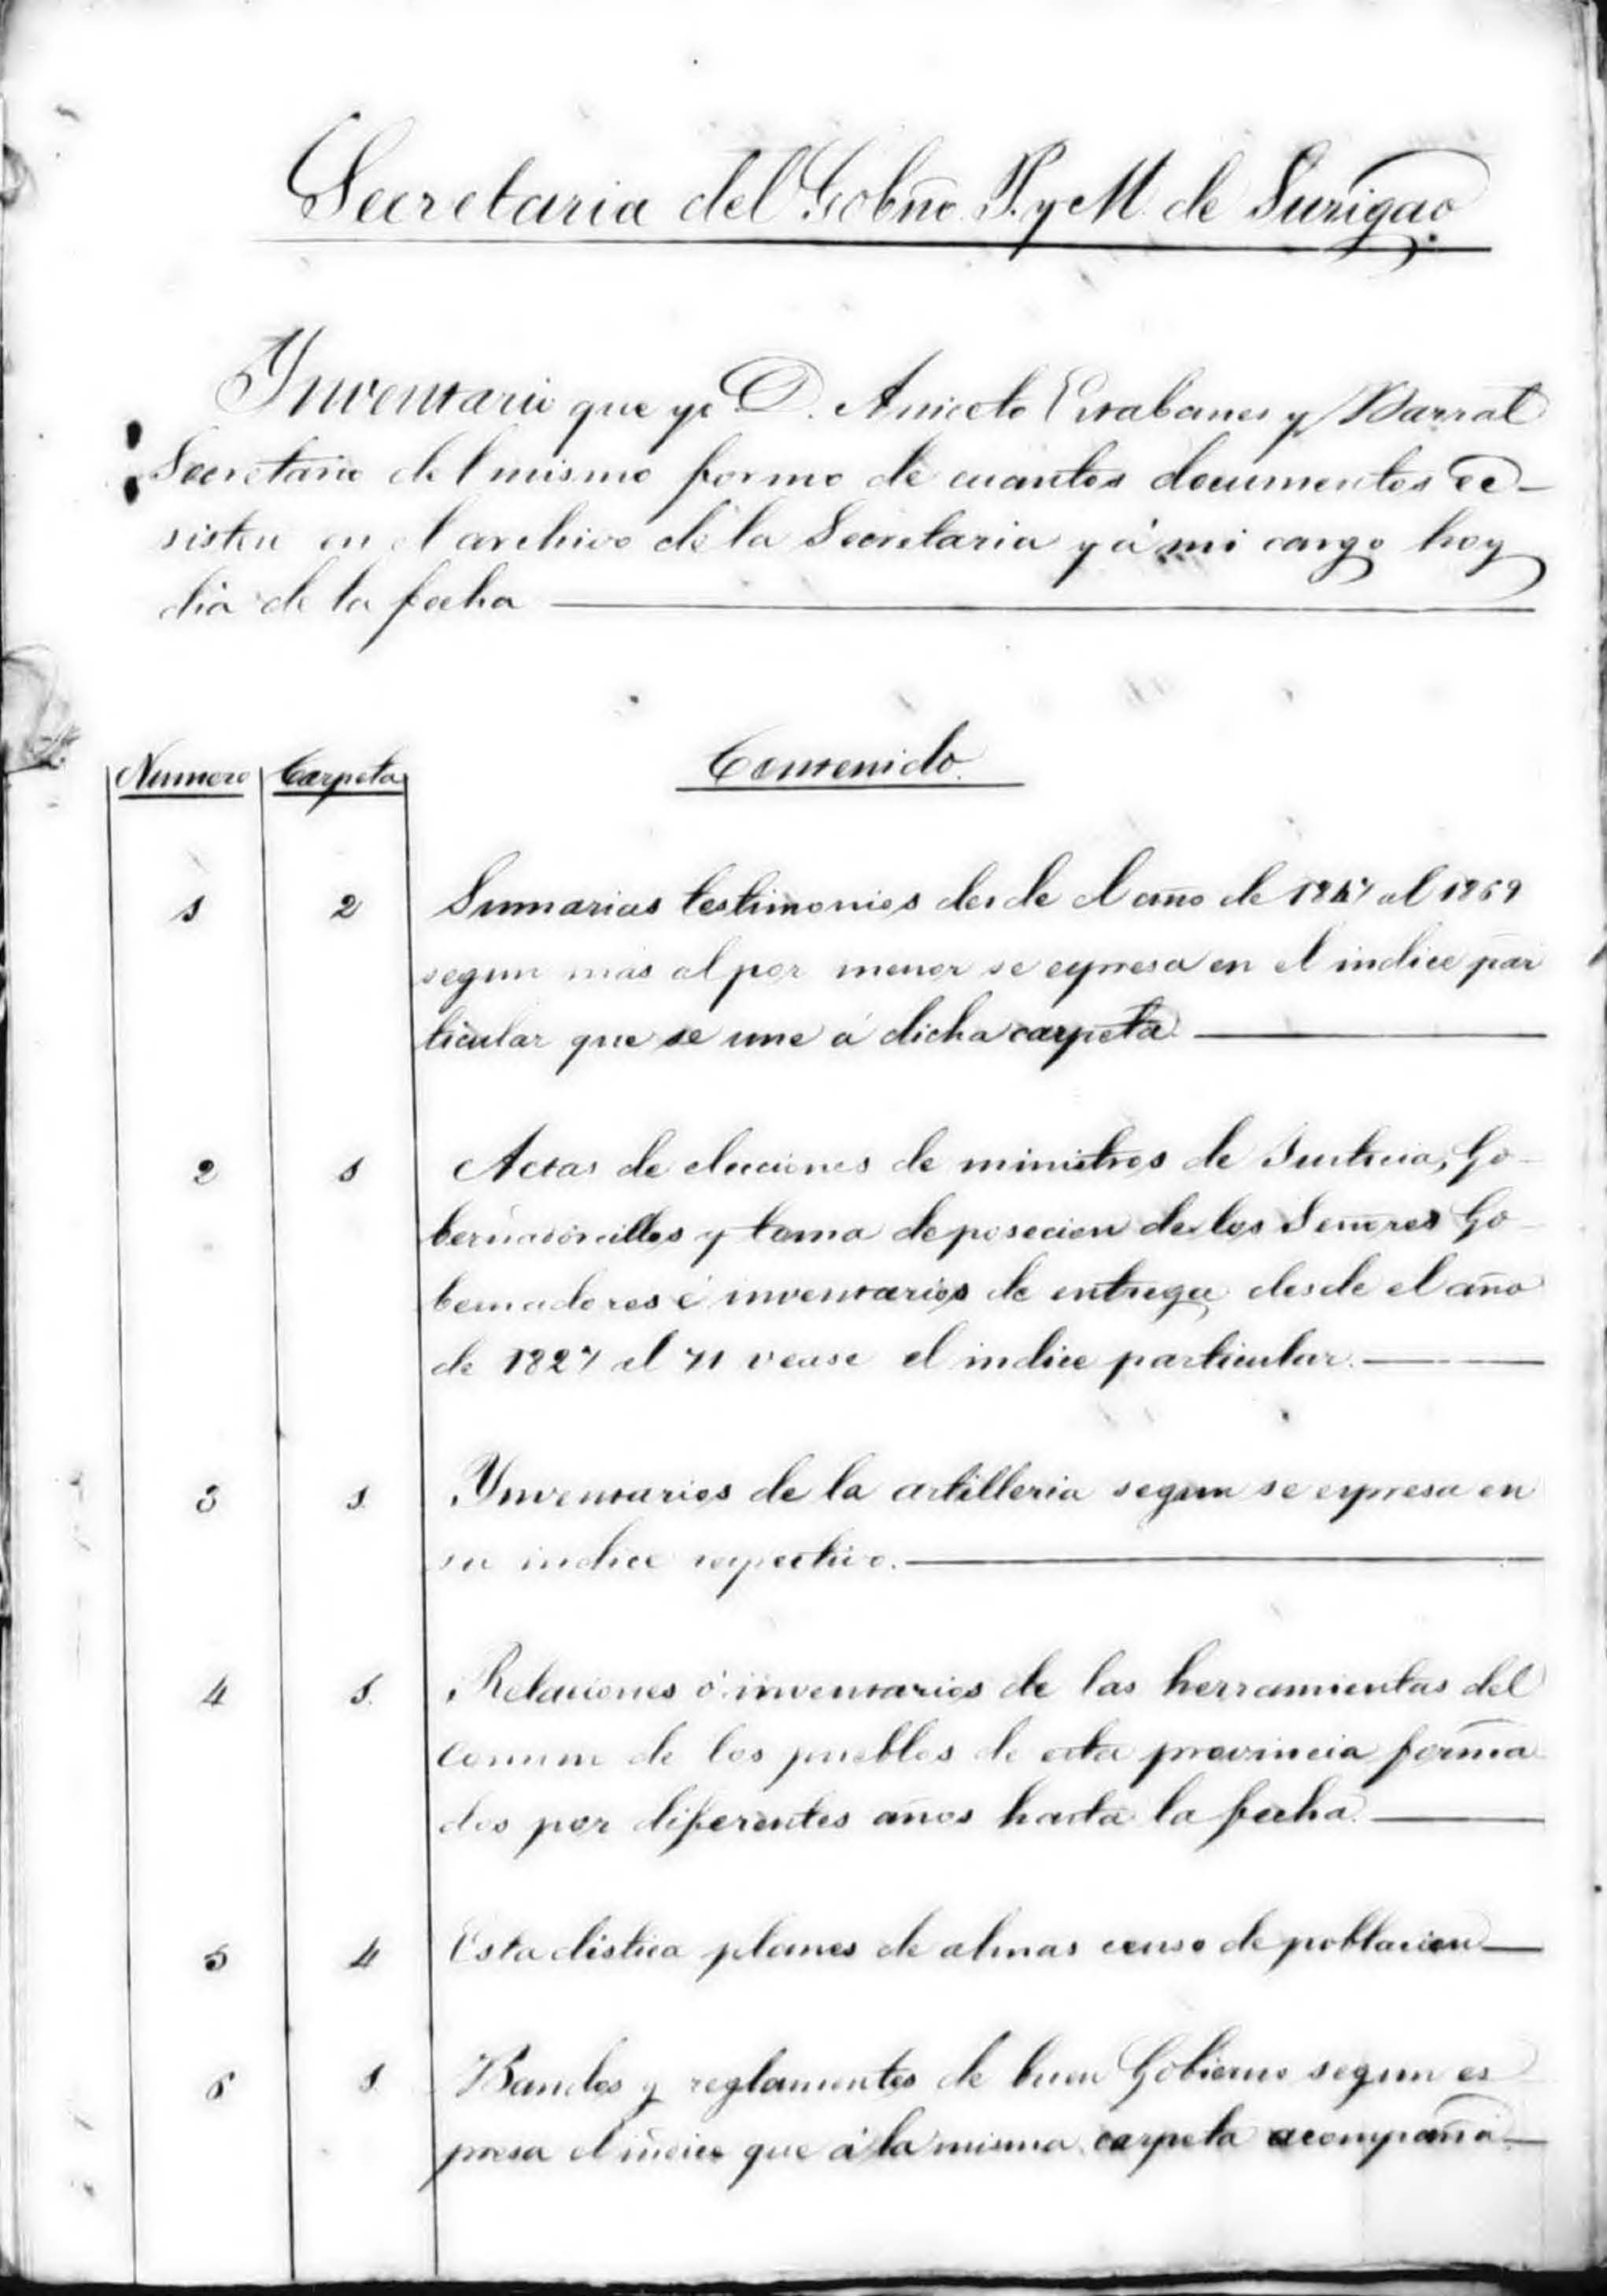 Secretaria del Gobno. P. y M. de Surigao
Ynventario que yo D. Aniceto y Barral
Secretario del mismo formo de cuantos documentos ec-
sisten en el archivo de la Secretaria y á mi cargo hoy
dia de la fecha
Numero Carpeta Contenido.
1 2 Sumarias testimonios desde el año de al 1869
segun mas al por menor se espresa en el indice par
ticular que se une á dicha carpeta.
2 1 Actas de elecciones de ministros de Justicia, Go-
bernadorcillos y toma de posecion de los Señores Go-
bernadores é inventarios de entrega desde el año
de 1827 al 71 vease el indice particular.
3 1. Ynventarios de la artilleria segun se espresa en
su indice respectivo.
4 1. Relaciones ó inventarios de las herramientas del
comun de los pueblos de esta provincia forma
dos por diferentes años hasta la fecha.
5 4 Estadistica planes de almas censo de poblacion
6 1 Bandos y reglamentos de buen Gobierno segun es
presa el indice que á la misma carpeta acompaña.